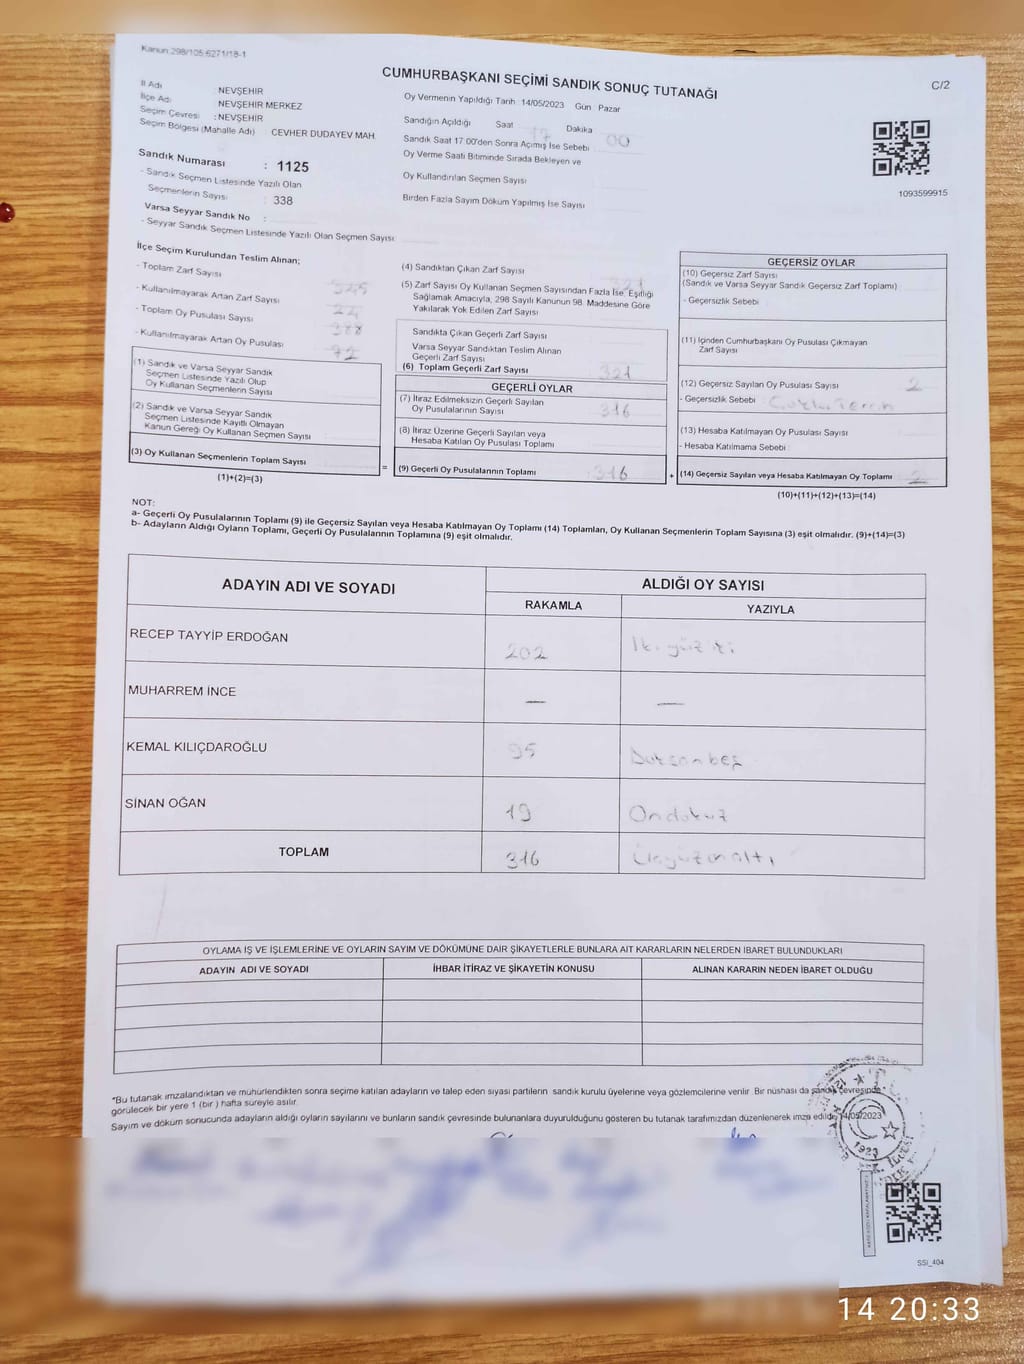 Kanun:298/105.6271/18-1
CUMHURBAŞKANI SEÇİMİ SANDIK SONUÇ TUTANAĞI
C/2
İl Adı : NEVŞEHİR
İlçe Adı : NEVŞEHİR MERKEZ
Seçim Çevresi : NEVŞEHİR
Seçim Bölgesi (Mahalle Adı) CEVHER DUDAYEV MAH.
Sandık Numarası : 1125
- Sandık Seçmen Listesinde Yazılı Olan
Seçmenlerin Sayısı : 338
Varsa Seyyar Sandık No :
- Seyyar Sandık Seçmen Listesinde Yazılı Olan Seçmen Sayısı
Oy Vermenin Yapıldığı Tarih 14/05/2023 Gün Pazar
Sandığın Açıldığı Saat 17 Dakika 00
Sandık Saat 17:00'den Sonra Açımış İse Sebebi
Oy Verme Saati Bitiminde Sırada Bekleyen ve
Oy Kullandırılan Seçmen Sayısı
Birden Fazla Sayım Döküm Yapılmış İse Sayısı
1093599915
İlçe Seçim Kurulundan Teslim Alınan;
- Toplam Zarf Sayısı 345
- Kullanılmayarak Artan Zarf Sayısı 24
- Toplam Oy Pusulası Sayısı 388
- Kullanılmayarak Artan Oy Pusulası 72
(1) Sandık ve Varsa Seyyar Sandık
Seçmen Listesinde Yazılı Olup
Oy Kullanan Seçmenlerin Sayısı
(2) Sandık ve Varsa Seyyar Sandık
Seçmen Listesinde Kayıtlı Olmayan
Kanun Gereği Oy Kullanan Seçmen Sayısı
(3) Oy Kullanan Seçmenlerin Toplam Sayısı
(1)+(2)=(3)
=
(4) Sandıktan Çıkan Zarf Sayısı 321
(5) Zarf Sayısı Oy Kullanan Seçmen Sayısından Fazla İse, Eşitliği
Sağlamak Amacıyla, 298 Sayılı Kanunun 98. Maddesine Göre
Yakılarak Yok Edilen Zarf Sayısı
Sandıkta Çıkan Geçerli Zarf Sayısı
Varsa Seyyar Sandıktan Teslim Alınan
Geçerli Zarf Sayısı
(6) Toplam Geçerli Zarf Sayısı 321
GEÇERLİ OYLAR
(7) İtiraz Edilmeksizin Geçerli Sayılan
Oy Pusulalarının Sayısı 316
(8) İtiraz Üzerine Geçerli Sayılan veya
Hesaba Katılan Oy Pusulası Toplamı
(9) Geçerli Oy Pusulalarının Toplamı : 316
+
GEÇERSİZ OYLAR
(10) Geçersiz Zarf Sayısı
(Sandık ve Varsa Seyyar Sandık Geçersiz Zarf Toplamı)
- Geçersizlik Sebebi
(11) İçinden Cumhurbaşkanı Oy Pusulası Çıkmayan
Zarf Sayısı
(12) Geçersiz Sayılan Oy Pusulası Sayısı 2
- Geçersizlik Sebebi
(13) Hesaba Katılmayan Oy Pusulası Sayısı
- Hesaba Katılmama Sebebi
(14) Geçersiz Sayılan veya Hesaba Katılmayan Oy Toplamı 2
(10)+(11)+(12)+(13)=(14)
NOT:
a- Geçerli Oy Pusulalarının Toplamı (9) ile Geçersiz Sayılan veya Hesaba Katılmayan Oy Toplamı (14) Toplamları, Oy Kullanan Seçmenlerin Toplam Sayısına (3) eşit olmalıdır. (9)+(14)=(3)
b- Adayların Aldığı Oyların Toplamı, Geçerli Oy Pusulalarının Toplamına (9) eşit olmalıdır.
ADAYIN ADI VE SOYADI
ALDIĞI OY SAYISI
RAKAMLA YAZIYLA
RECEP TAYYİP ERDOĞAN 202 İkiyüz iki
MUHARREM İNCE — —
KEMAL KILIÇDAROĞLU 95 Doksanbeş
SİNAN OĞAN 19 Ondokuz
TOPLAM 316 Üçyüzonaltı
OYLAMA İŞ VE İŞLEMLERİNE VE OYLARIN SAYIM VE DÖKÜMÜNE DAİR ŞİKAYETLERLE BUNLARA AİT KARARLARIN NELERDEN İBARET BULUNDUKLARI
ADAYIN ADI VE SOYADI İHBAR İTİRAZ VE ŞİKAYETİN KONUSU ALINAN KARARIN NEDEN İBARET OLDUĞU
*Bu tutanak imzalandıktan ve mühürlendikten sonra seçime katılan adayların ve talep eden siyasi partilerin sandık kurulu üyelerine veya gözlemcilerine verilir. Bir nüshası da sandık çevresinde
görülecek bir yere 1 (bir ) hafta süreyle asılır.
Sayım ve döküm sonucunda adayların aldığı oyların sayılarını ve bunların sandık çevresinde bulunanlara duyurulduğunu gösteren bu tutanak tarafımızdan düzenlenerek imza edildi. 14/05/2023
1923
SSİ_404
14 20:33